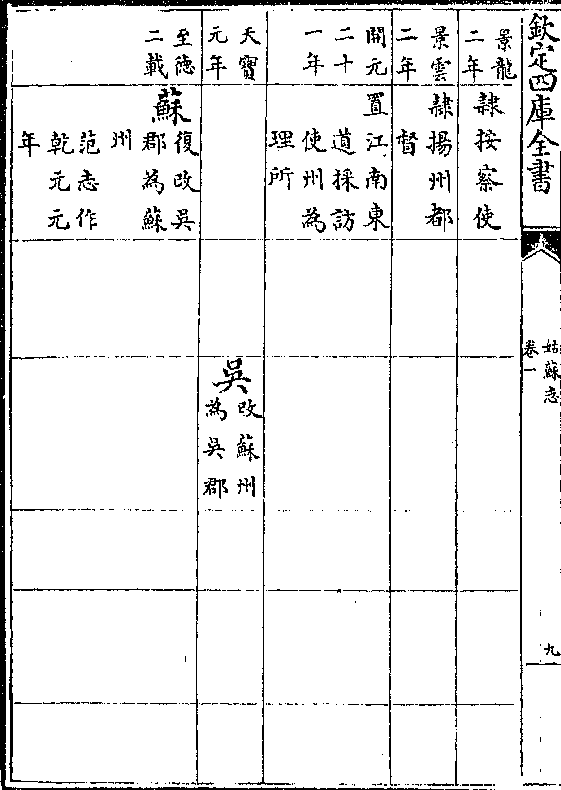 欽定四庫全書
姑蘇志
卷一
九
景龍
二年
隸按察使
景雲
二年
隸揚州都
督
開元
二十
一年
置江南東
道採訪
使州為
理所
天寶
元年
吳
改蘇州
為吳郡
至德
二載
蘇
復改吳
郡為蘇
州
范志作
乾元元
年